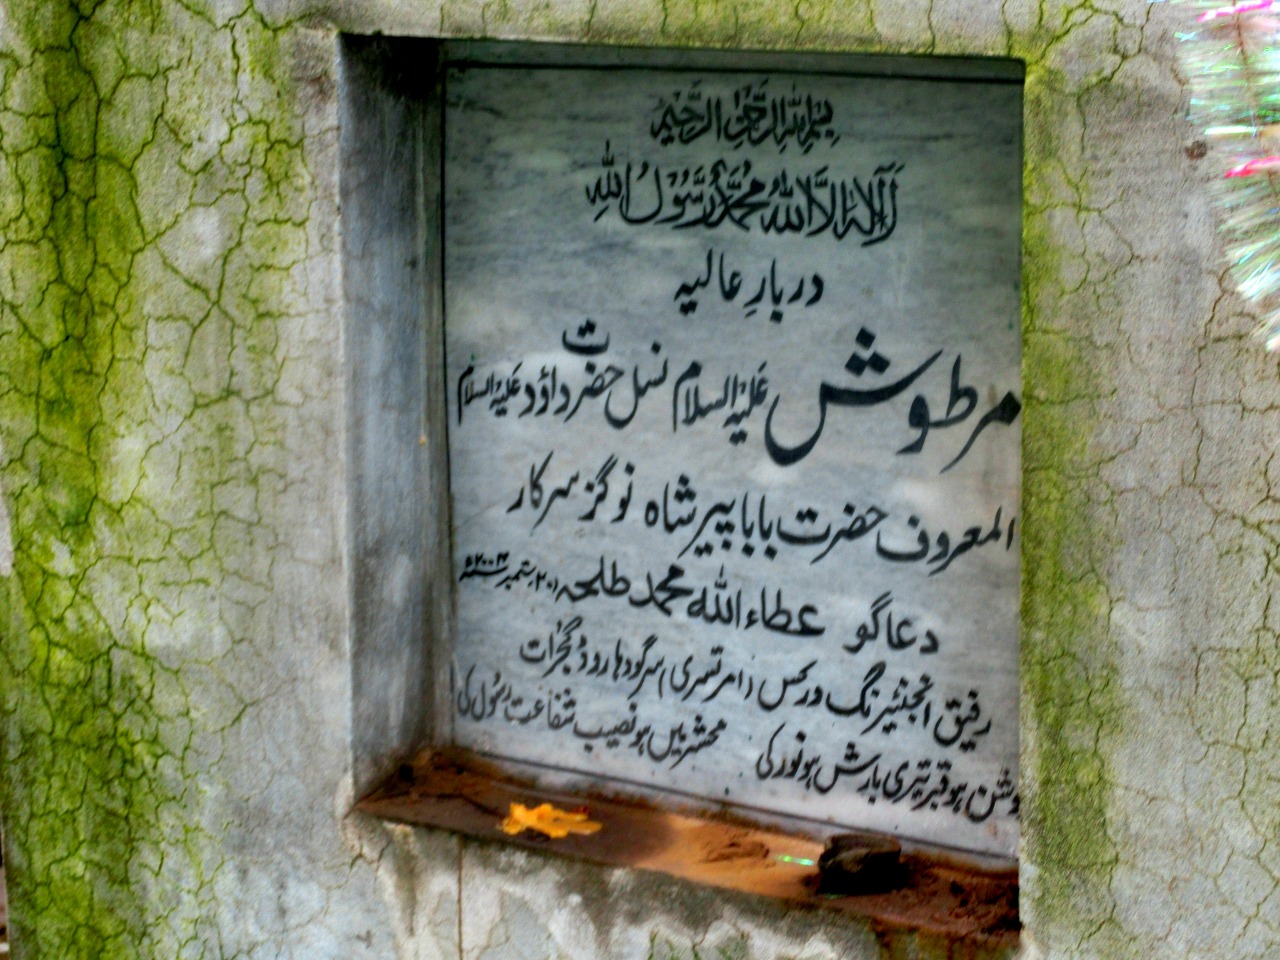 بِسْمِ اللهِ الرَّحْمٰنِ الرَّحِيْمِ
لَآ اِلٰهَ اِلَّا اللهُ مُحَمَّدٌ رَّسُوْلُ اللهِ
دربارِ عالیہ
مرطوش عَلَیْہِ السلام نسل حضرت داؤد عَلَیْہِ السلام
المعروف حضرت بابا پیر شاہ نوگز سرکار
دعا گو عطاء اللہ محمد طلحہ ۲۰ ستمبر ۲۰۰۴ء
رفیق انجنئیرنگ ورکس (امرتسری) سرگودہا روڈ گجُرات
روشن ہو قبر تیری بارش ہو نور کی محشر میں ہو نصیب شفاعت رسُول کی